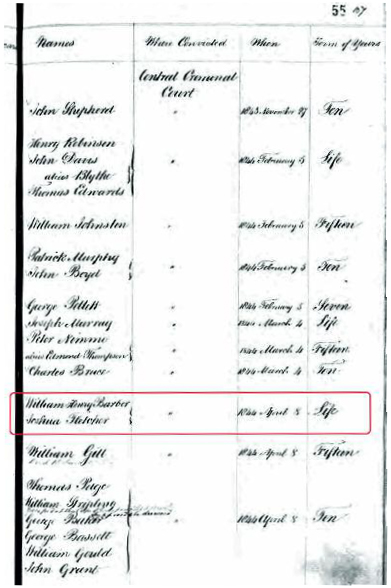 55 27
Names When Convicted When Term of Years
Central Criminal
Court
John Shepherd " 1843 November 27 Ten
Henry Robinson
John Davis " 1844 February 5 Life
alias Blythe
Thomas Edwards
William Johnston " 1844 February 5 Fifteen
Patrick Murphy
John Boyd " 1844 February 5 Ten
George Pellett " 1844 February 5 Seven
Joseph Murray " 1844 March 4 Life
Peter Nimmo
alias Edmond Thompson " 1844 March 4 Fifteen
Charles Bruce " 1844 March 4 Ten
William Henry Barber
Joshua Fletcher " 1844 April 8 Life
William Gill " 1844 April 8 Fifteen
Thomas Paige
William Stripling
George Baker " 1844 April 8 Ten
George Bassett
William Gould
John Grant